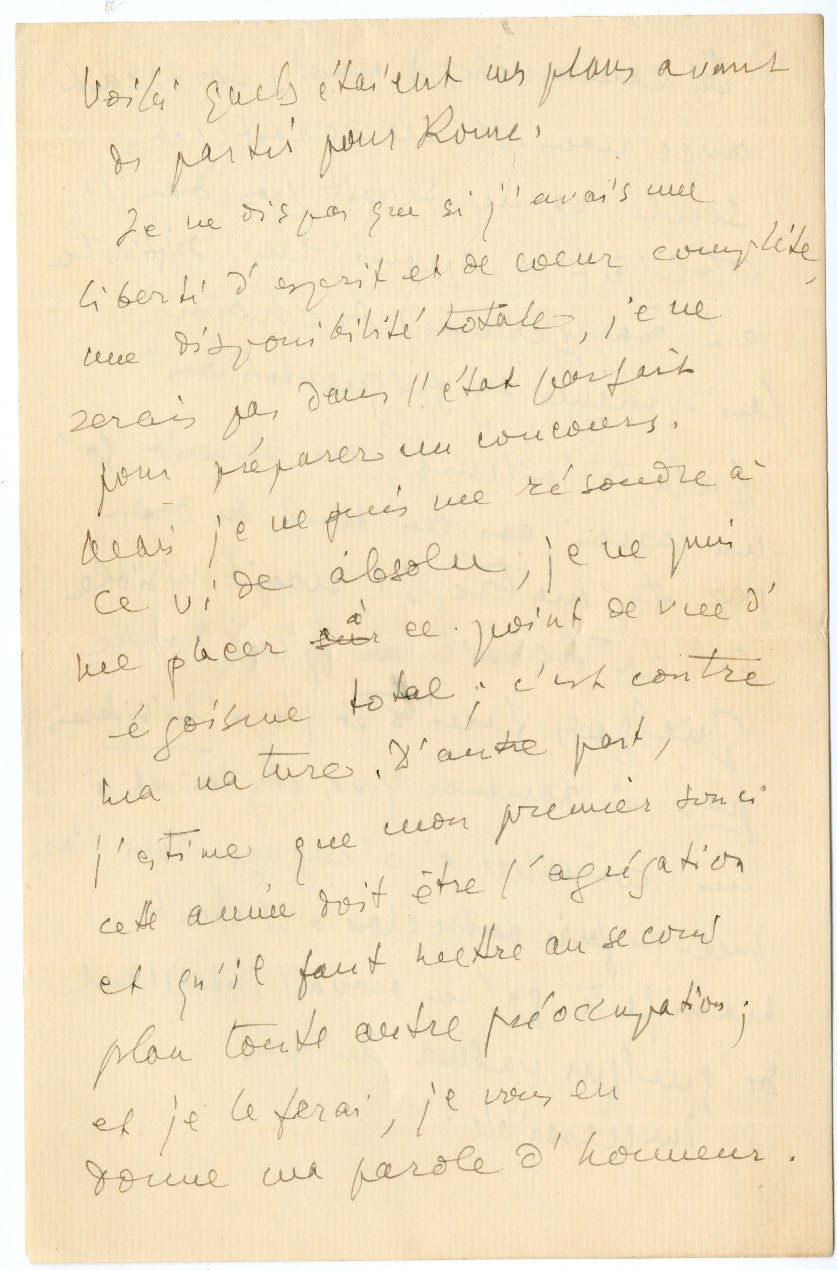 Voilà quels étaient mes plans avant
de partir pour Rome.
Je ne dis pas que si j'avais une
liberté d'esprit et de coeur complète,
une disponibilité totale, je ne
serais pas dans l'état parfait
pour préparer un concours.
Mais je ne puis me résoudre à
ce vide absolu, je ne puis
me placer ~~sur~~ à ce point de vue d'
égoïsme total ; c'est contre
ma nature. D'autre part,
j'estime que mon premier souci
cette année doit être l'agrégation
et qu'il faut mettre au second
plan toute autre préoccupation ;
et je le ferai, je vous en
donne ma parole d'honneur.